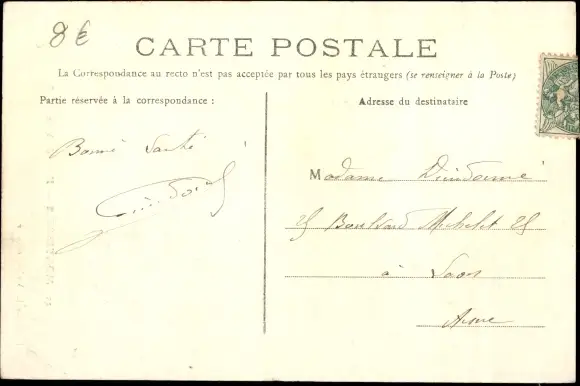 8 €
CARTE POSTALE
La Correspondance au recto n'est pas acceptée par tous les pays étrangers (se renseigner à la Poste)
Partie réservée à la correspondance :
Adresse du destinataire
Bonne Santé
Madame Dieudonné
25 Boulevard Michelet 25
à Laon
Aisne